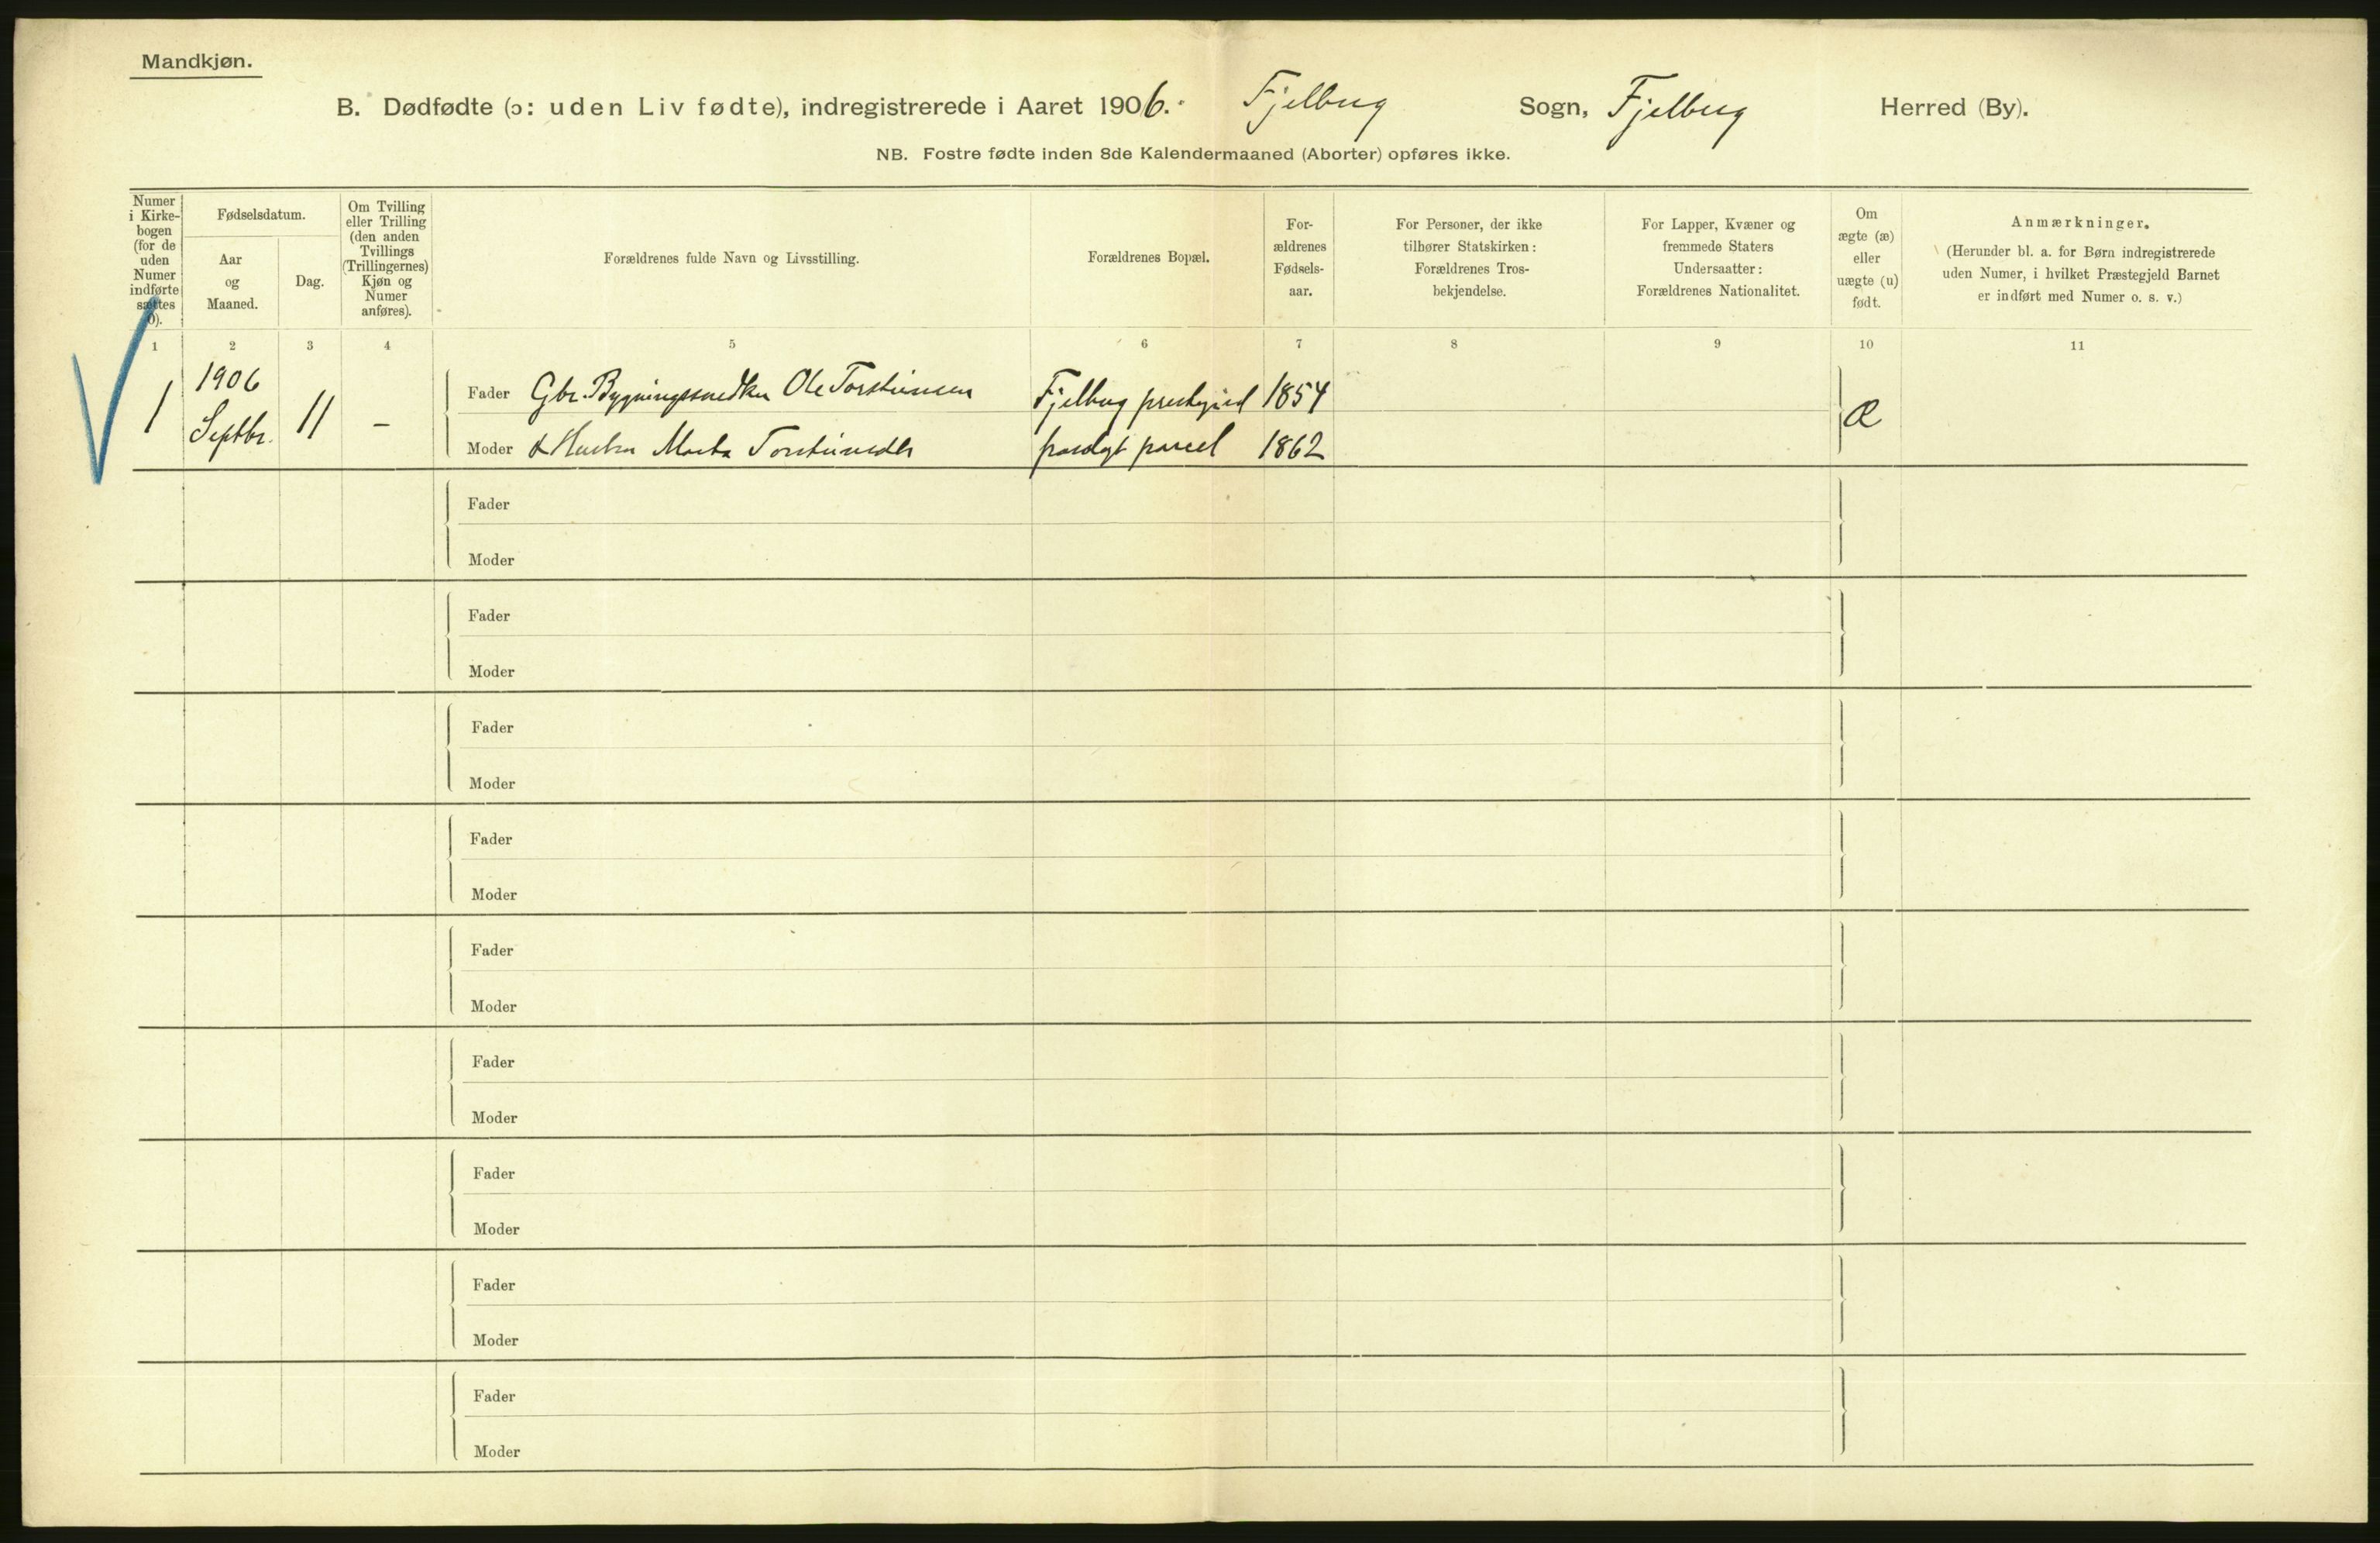 Mandkjøn.
B. Dødfødte (ɔ: uden Liv fødte), indregistrerede i Aaret 1906. Fjelberg Sogn, Fjelberg Herred (By).
NB. Fostre fødte inden 8de Kalendermaaned (Aborter) opføres ikke.
Numer i Kirke-bogen (for de uden Numer indførte sættes 0).
Fødselsdatum.
Aar og Maaned.
Dag.
Om Tvilling eller Trilling (den anden Tvillings (Trillingernes) Kjøn og Numer anføres).
Forældrenes fulde Navn og Livsstilling.
Forældrenes Bopæl.
For-ældrenes Fødsels-aar.
For Personer, der ikke tilhører Statskirken: Forældrenes Tros-bekjendelse.
For Lapper, Kvæner og fremmede Staters Undersaatter: Forældrenes Nationalitet.
Om ægte (æ) eller uægte (u) født.
Anmærkninger.
(Herunder bl. a. for Børn indregistrerede uden Numer, i hvilket Præstegjeld Barnet er indført med Numer o. s. v.)
1 2 3 4 5 6 7 8 9 10 11
1 1906 Septbr. 11 –
Fader Gbr. Bygningssnedker Ole Torsteinsen Fjelberg 1854
Moder & Hustru Marta Torsteinsdtr parcel 1862
Æ
Fader
Moder
Fader
Moder
Fader
Moder
Fader
Moder
Fader
Moder
Fader
Moder
Fader
Moder
Fader
Moder
Fader
Moder